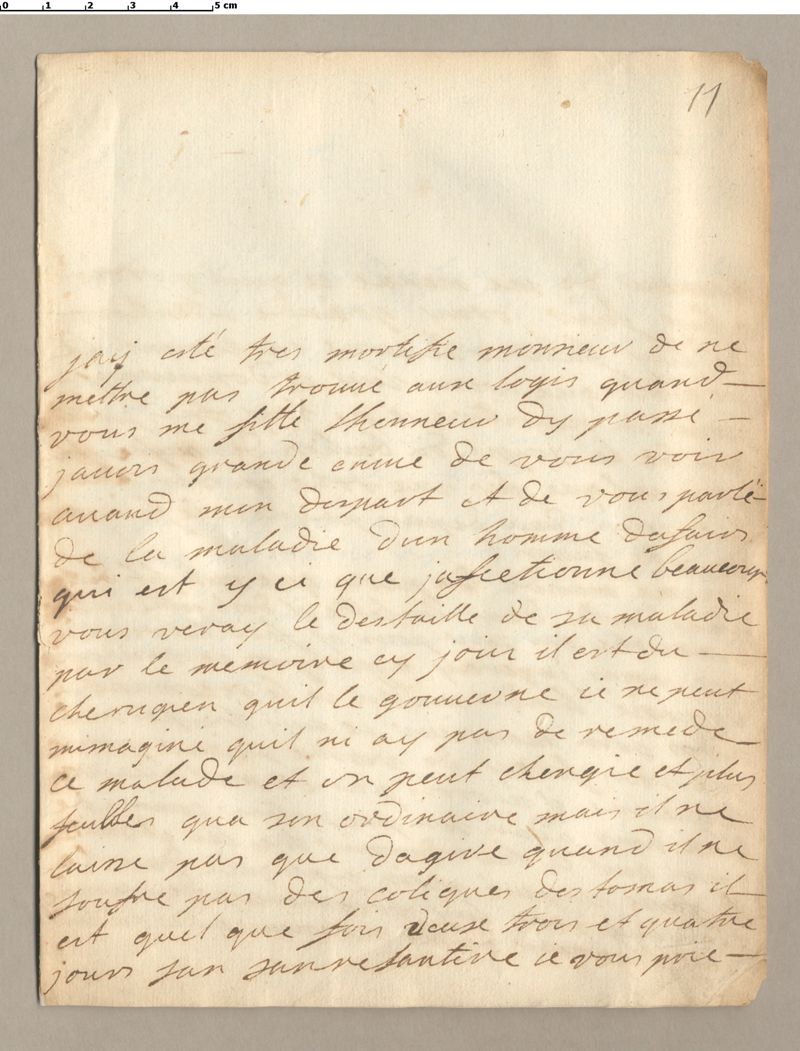 0 1 2 3 4 5 cm
11
jay esté tres mortifie monsieur de ne
mettre pas trouué aux logis quand
vous me fitte lhenneur dy passé
jauois grande enuie de vous voir
auand mon despart et de vous parlé
de la maladie dun homme dafairs
qui est y ci que jafectionne beaucoup
vous veray le destaille de sa maladie
par le memoire cy join il est du
cherugien quil le gouuerne ie ne peut
mimaginé quil ni ay pas de remede
ce malade et un peut chengie et plus
feulbles qua son ordinaire mais il ne
laisse pas que dagire quand il ne
soufre pas des coliques destomas il
est quel que fois deux trois et quattre
jours san sanresantire ie vous prie